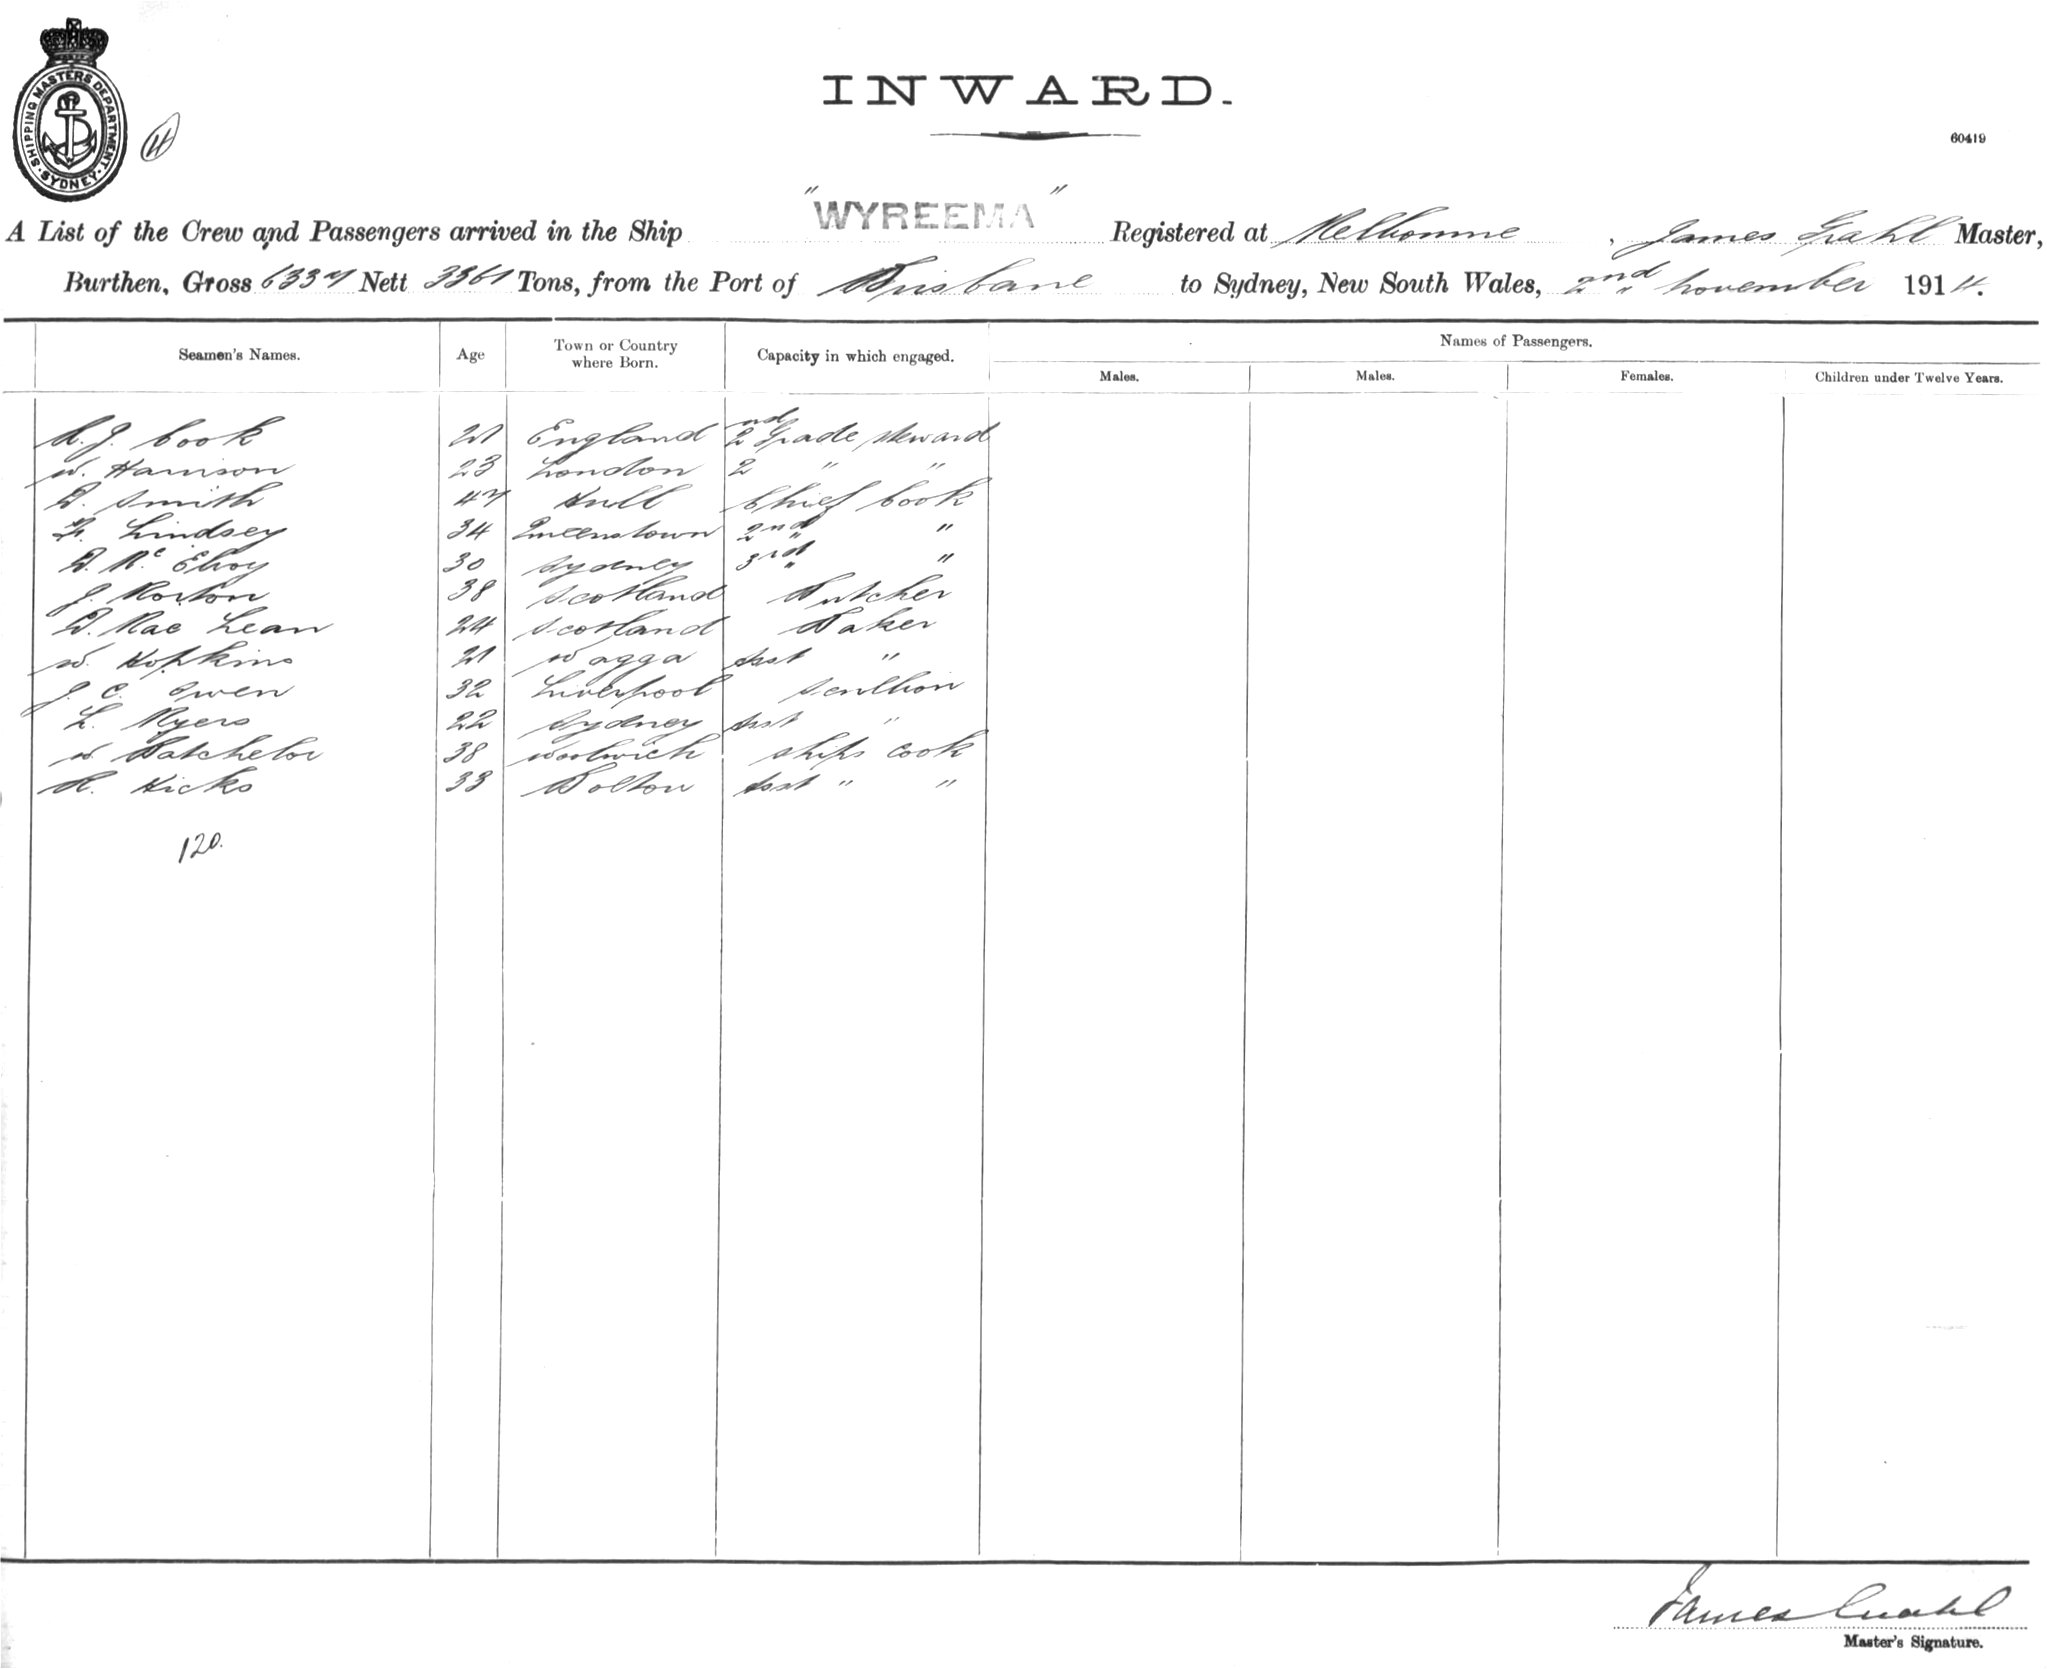 SHIPPING MASTERS DEPARTMENT
SYDNEY
4
INWARD.
60419
A List of the Crew and Passengers arrived in the Ship "WYREEMA" Registered at Melbourne, James Grahl Master,
Burthen, Gross 6337 Nett 3361 Tons, from the Port of Brisbane to Sydney, New South Wales, 2nd November 1914.
Seamen's Names. Age Town or Country where Born. Capacity in which engaged. Names of Passengers.
Males. Males. Females. Children under Twelve Years.
J. Cook 21 England 2nd Grade steward
W. Harrison 23 London 2 " "
D. Smith 47 Hull Chief Cook
Lindsey 34 Queenstown 2nd " "
D. McElroy 30 Sydney 3rd " "
J. Morton 38 Scotland Butcher
D. MacLean 24 Scotland Baker
W. Hopkins 21 Wagga Asst "
J. C. Owen 32 Liverpool Scullion
L. Myers 22 Sydney Asst "
W. Batchelor 38 Woolwich Ships Cook
Hicks 33 Bolton Asst " "
120.
James Grahl
Master's Signature.